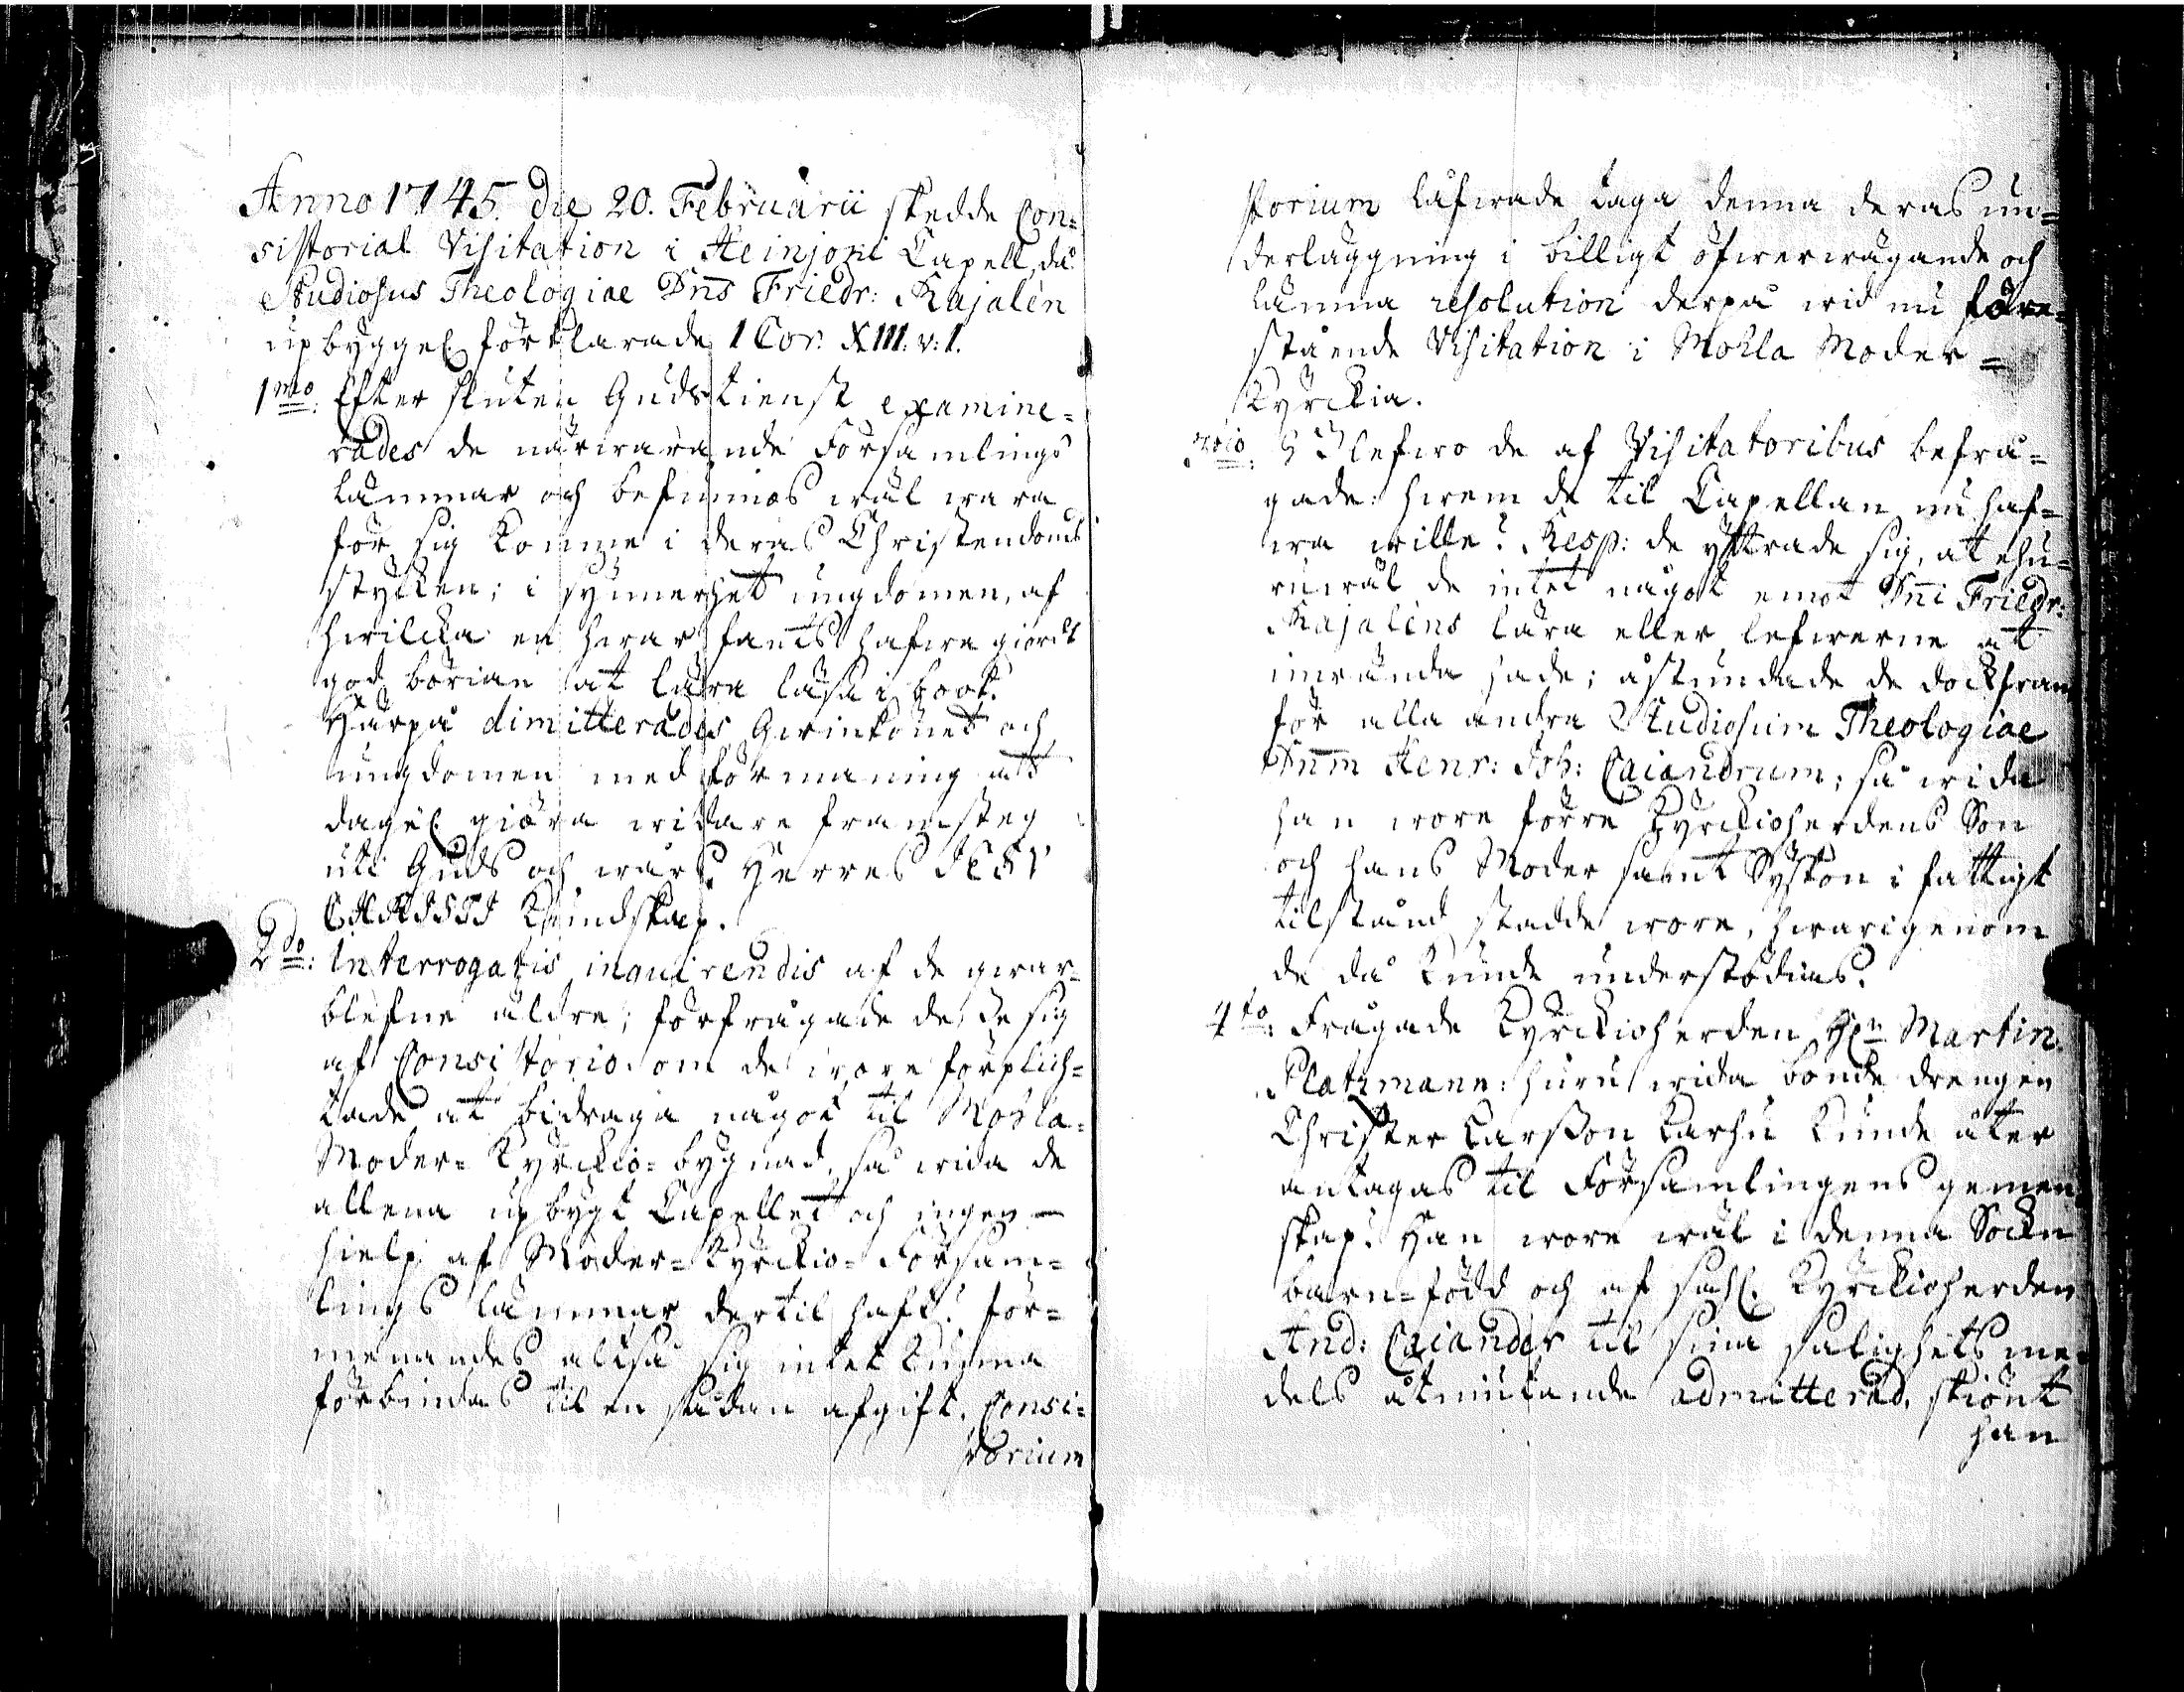 Anno 1745. die 20. Februarii skedde Con=
sistorial Visitation i Heinjoki Capell, då
Studiosus Theologiae Dns Friedr: Kajalén
upbyggel. förklarade 1 Cor. XIII. v: 1.
1mo. Efter sluten Gudstienst examine=
rades de närwarande Församlings
lämmar och befunnos wäl wara
för sig komne i deras Christendoms
stycken; i synnerhet ungdomen, af
hwilcka en hwar fants hafwa giordt
god början at lära läsa i book.
Härpå dimitterades Qwinkönet och
ungdomen med förmaning att
dagel. giöra widare framsteg
uti Guds och wårs Herres JESU
CHRISTI kundskap.
2do: Interrogatis inquirendis af de qwar=
blefne äldre; förfrågade de sig
af Consistorio. om de wore förplich=
tade at bidraga något til Mohla=
Moder= Kyrckio= bygnad, så wida de
allena upbygt Capellet och ingen
hielp af Moder= Kyrckio= Försam=
lings lämmar dertil haft? för=
menandes altså sig intet kunna
förbindas til en sådan afgift. Consi=
storium
storium låfwade taga denna deras un=
derläggning i billigt öfwerwägande och
lämna resolution derpå wid nu före=
stående Visitation i Mohla Moder=
Kyrckia.
3tio. Blefwo de af Visitatoribus befrå=
gade: hwem de til Capellan nu haf=
wa wille? Resp: de yttrade sig, at ehu=
ruwäl de intet något emot Dni Friedr:
Kajaléns lära eller lefwerne att
inwända hade; åstundade de dock fram
för alla andra Studiosum Theologiae
Dnm Henr: Joh: Caiandrum; så wida
han wore förre Kyrckioherdens Son
och hans Moder samt Syskon i fattigt
tilstånd stadde wore, hwarigenom
de då kunde understödias.
4to: Frågade Kyrckioherden Hrn Martin
Platzmann: huru wida bonde drengen
Christer Larsson Karhu kunde åter
antagas til Församlingens gemen
skap? Han wore wäl i denna Sockn
barn=född och af sahl. Kyrckioherden
And: Caiander til sina salighets me=
dels åtniutande admitterad, skiönt
han